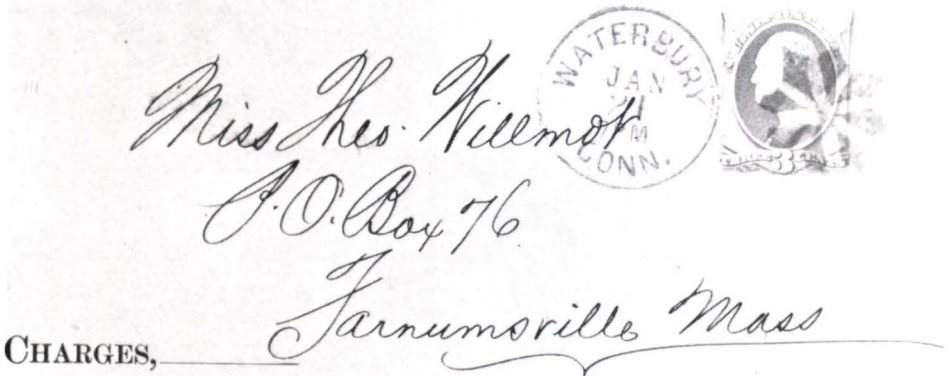 WATERBURY
JAN
M
CONN.
THREE 3 CENTS
Miss Theo. Willmot
P.O. Box 76
Farnumsville Mass
CHARGES,